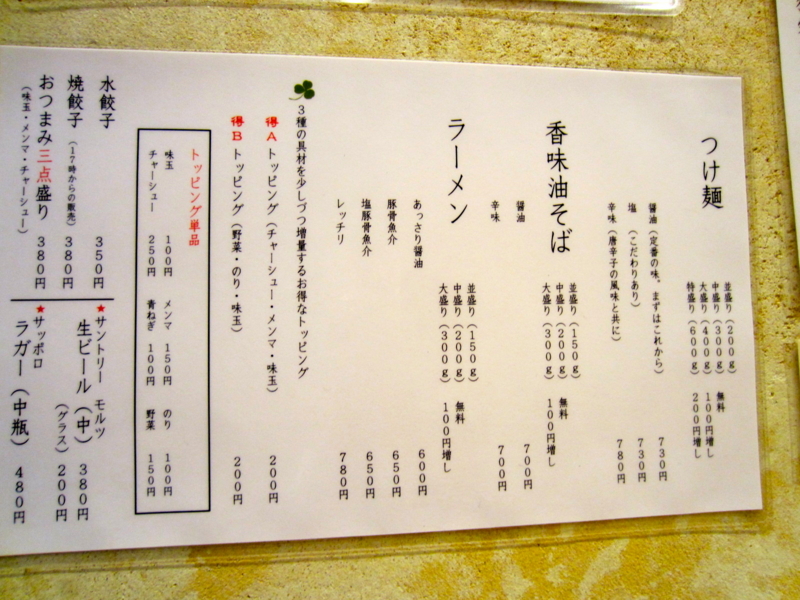 つけ麺
並盛り（２００ｇ）
中盛り（３００ｇ） 無料
大盛り（４００ｇ） １００円増し
特盛り（６００ｇ） ２００円増し
醤油（定番の味。まずはこれから） ７３０円
塩 （こだわりあり） ７３０円
辛味（唐辛子の風味と共に） ７８０円
香味油そば
並盛り（１５０ｇ）
中盛り（２００ｇ） 無料
大盛り（３００ｇ） １００円増し
醤油 ７００円
辛味 ７００円
ラーメン
並盛り（１５０ｇ）
中盛り（２００ｇ） 無料
大盛り（３００ｇ） １００円増し
あっさり醤油 ６００円
豚骨魚介 ６５０円
塩豚骨魚介 ６５０円
レッチリ ７８０円
３種の具材を少しづつ増量するお得なトッピング
得Ａトッピング（チャーシュー・メンマ・味玉） ２００円
得Ｂトッピング（野菜・のり・味玉） ２００円
トッピング単品
味玉 １００円 メンマ １５０円 のり １００円
チャーシュー ２５０円 青ねぎ １００円 野菜 １５０円
水餃子 ３５０円
焼餃子（１７時からの販売） ３８０円
おつまみ三点盛り ３８０円
（味玉・メンマ・チャーシュー）
★サントリー モルツ
生ビール（中） ３８０円
（グラス） ２００円
★サッポロ
ラガー（中瓶） ４８０円